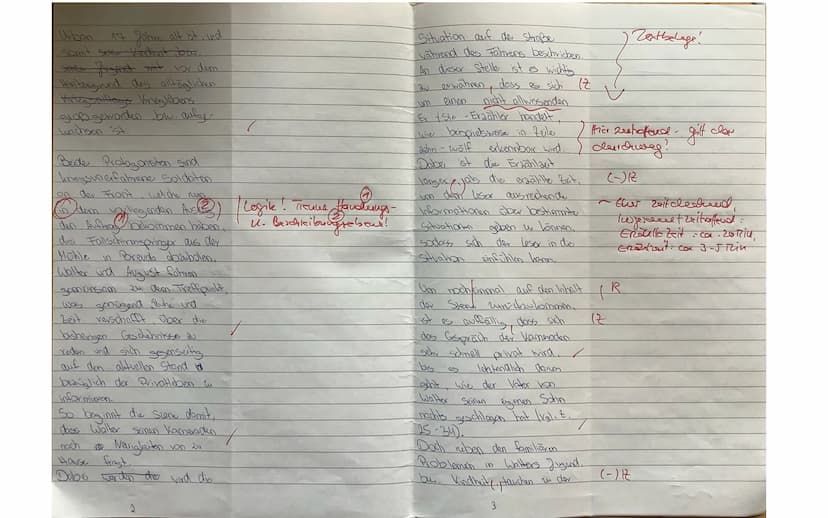 Urban 17 Jahre alt ist und
somit
vor dem
Hintergrund des alltäglichen
Kriegslebens
großgeworden bzw. aufge-
wachsen ist.
Beide Protagonisten sind
kriegsunerfahrene Soldaten
an der Front, welche nun
in dem vorliegenden
den Auftrag bekommen haben,
die Fallschirmspringer aus der
Mühle in abzuholen.
Walter und August fahren
gemeinsam zu dem Treffpunkt,
was genügend Ruhe und
Zeit verschafft über die
bisherigen Geschehnisse zu
reden und sich gegenseitig
auf den aktuellen Stand
bezüglich der Privatleben zu
informieren.
So beginnt die Szene damit,
dass Walter seinen Kameraden
nach Neuigkeiten von zu
Hause fragt.
Dabei werden die wird die
2
Logik! Trenne Handlungs-
u. Beschreibungsebene!
1
2
1
2
Situation auf der Straße
während des Fahrens beschrieben.
An dieser Stelle ist es wichtig
zu erwähnen, dass es sich
um einen nicht allwissenden
Er/sie-Erzähler handelt,
wie beispielsweise in Zeile
zehn-zwölf erkennbar wird.
Dabei ist die Erzählzeit
länger, als die erzählte Zeit,
um dem Leser ausreichende
Informationen über bestimmte
Situationen geben zu können,
sodass sich der Leser in die
Situation einfühlen kann.
Um nocheinmal auf den Inhalt
der Szene zurückzukommen,
ist es auffällig, dass sich
das Gespräch der Kameraden
sehr schnell privat wird,
bis es letztendlich darum
geht, wie der Vater von
Walter seinen eigenen Sohn
nachts geschlagen hat (vgl. Z.
25-34).
Doch neben den familiären
Problemen in Walters Jugend
bzw. Kindheit, tauchen in der
3
Textbelege!
Z
Hier zutreffend - gilt aber
durchweg!
(-) Z
~ Eher zeitdeckend,
insgesamt zeitraffend:
Erzählte Zeit: ca. 20 Min,
Erzählzeit: ca 3-5 Min
R
Z
(-) Z